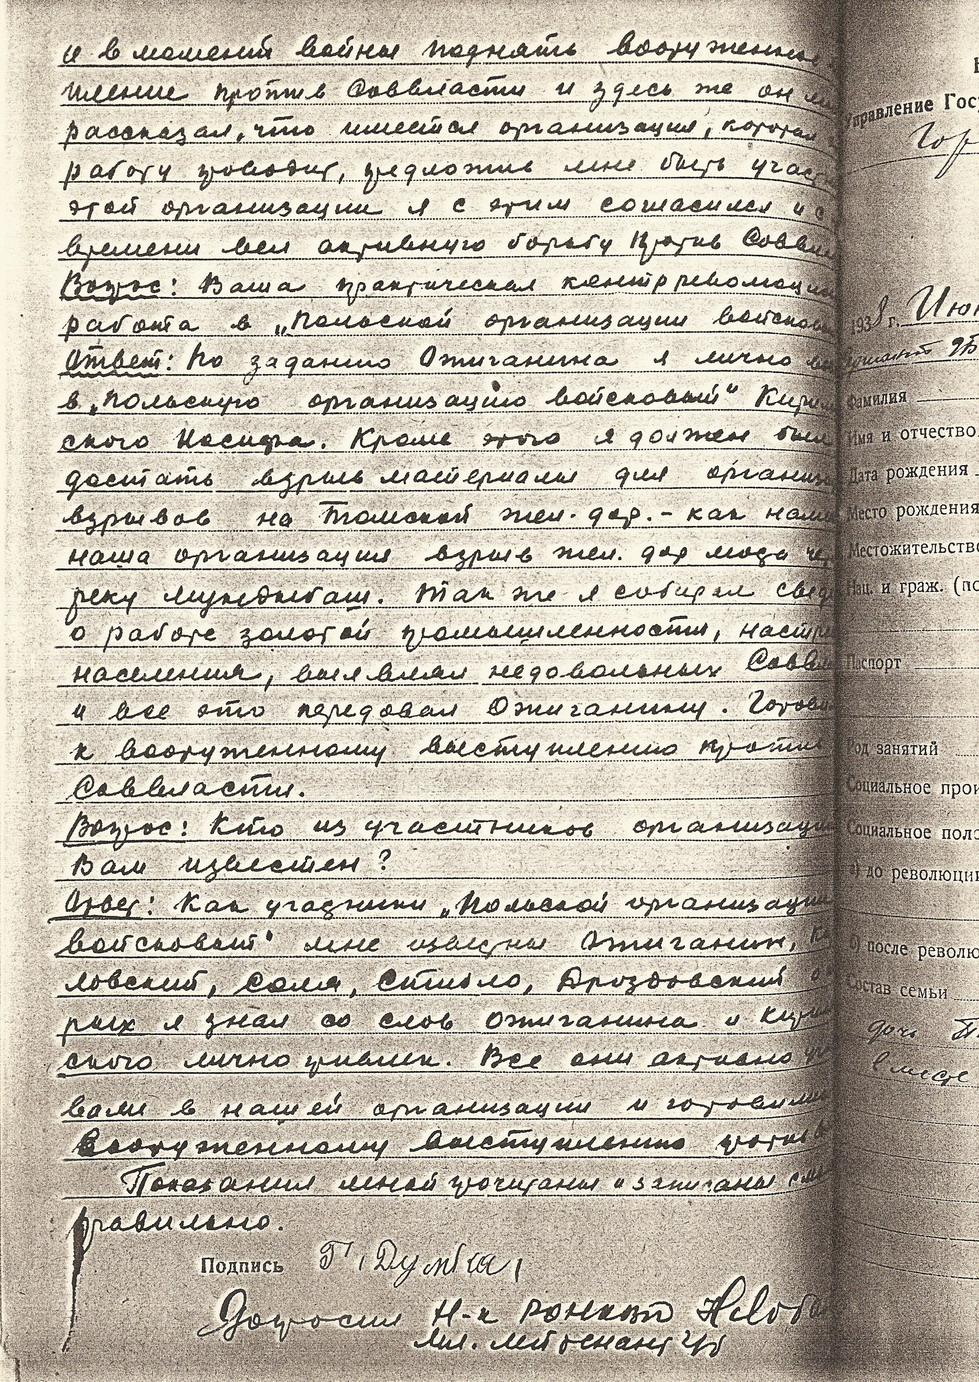 и в момент войны поднять вооруженно
пление против Соввласти и здесь же он
рассказал, что имеется организация, которая
работу проводит, предложив мне быть участ
этой организации я с этим согласился и с
времени вел активную борьбу против Соввла
Вопрос: Ваша практическая контрреволюцион
работа в „Польской организации войсков
Ответ: По заданию Ожиганина я лично
в „Польскую организацию войсковый" Кирил
ского Иосифа. Кроме этого я должен был
достать взрыв материалы для организа
взрывов на Томской жел. дор. - как нам
наша организация взрыв жел. дор моста че
реку Мундыбаш. Так же я собирал свед
о работе золотой промышленности, настр
населения, выявлял недовольных Соввл
и все это передовал Ожиганину. Готов
к вооруженному выступлению против
Соввласти.
Вопрос: Кто из участников организаци
Вам известен?
Ответ: Как участники „Польской организации
войсковый" мне известны Ожиганин,
ловский, Соля, Дроздовский
рых я знал со слов Ожиганина и Кирил
ского лично привлек. Все они активно
вали в нашей организации и готовили
вооруженному выступлению против
Показания мной прочитаны и записаны
правильно.
Подпись Г. Думка
Допросил Н-к
мл. лейтенант
Управление Гос
Гор
1938 г. Июн
Фамилия
Имя и отчество
Дата рождения
Место рождения
Местожительство
Нац. и граж. (по
Паспорт
Род занятий
Социальное прои
Социальное поло
а) до революции
б) после револю
Состав семьи
дочь